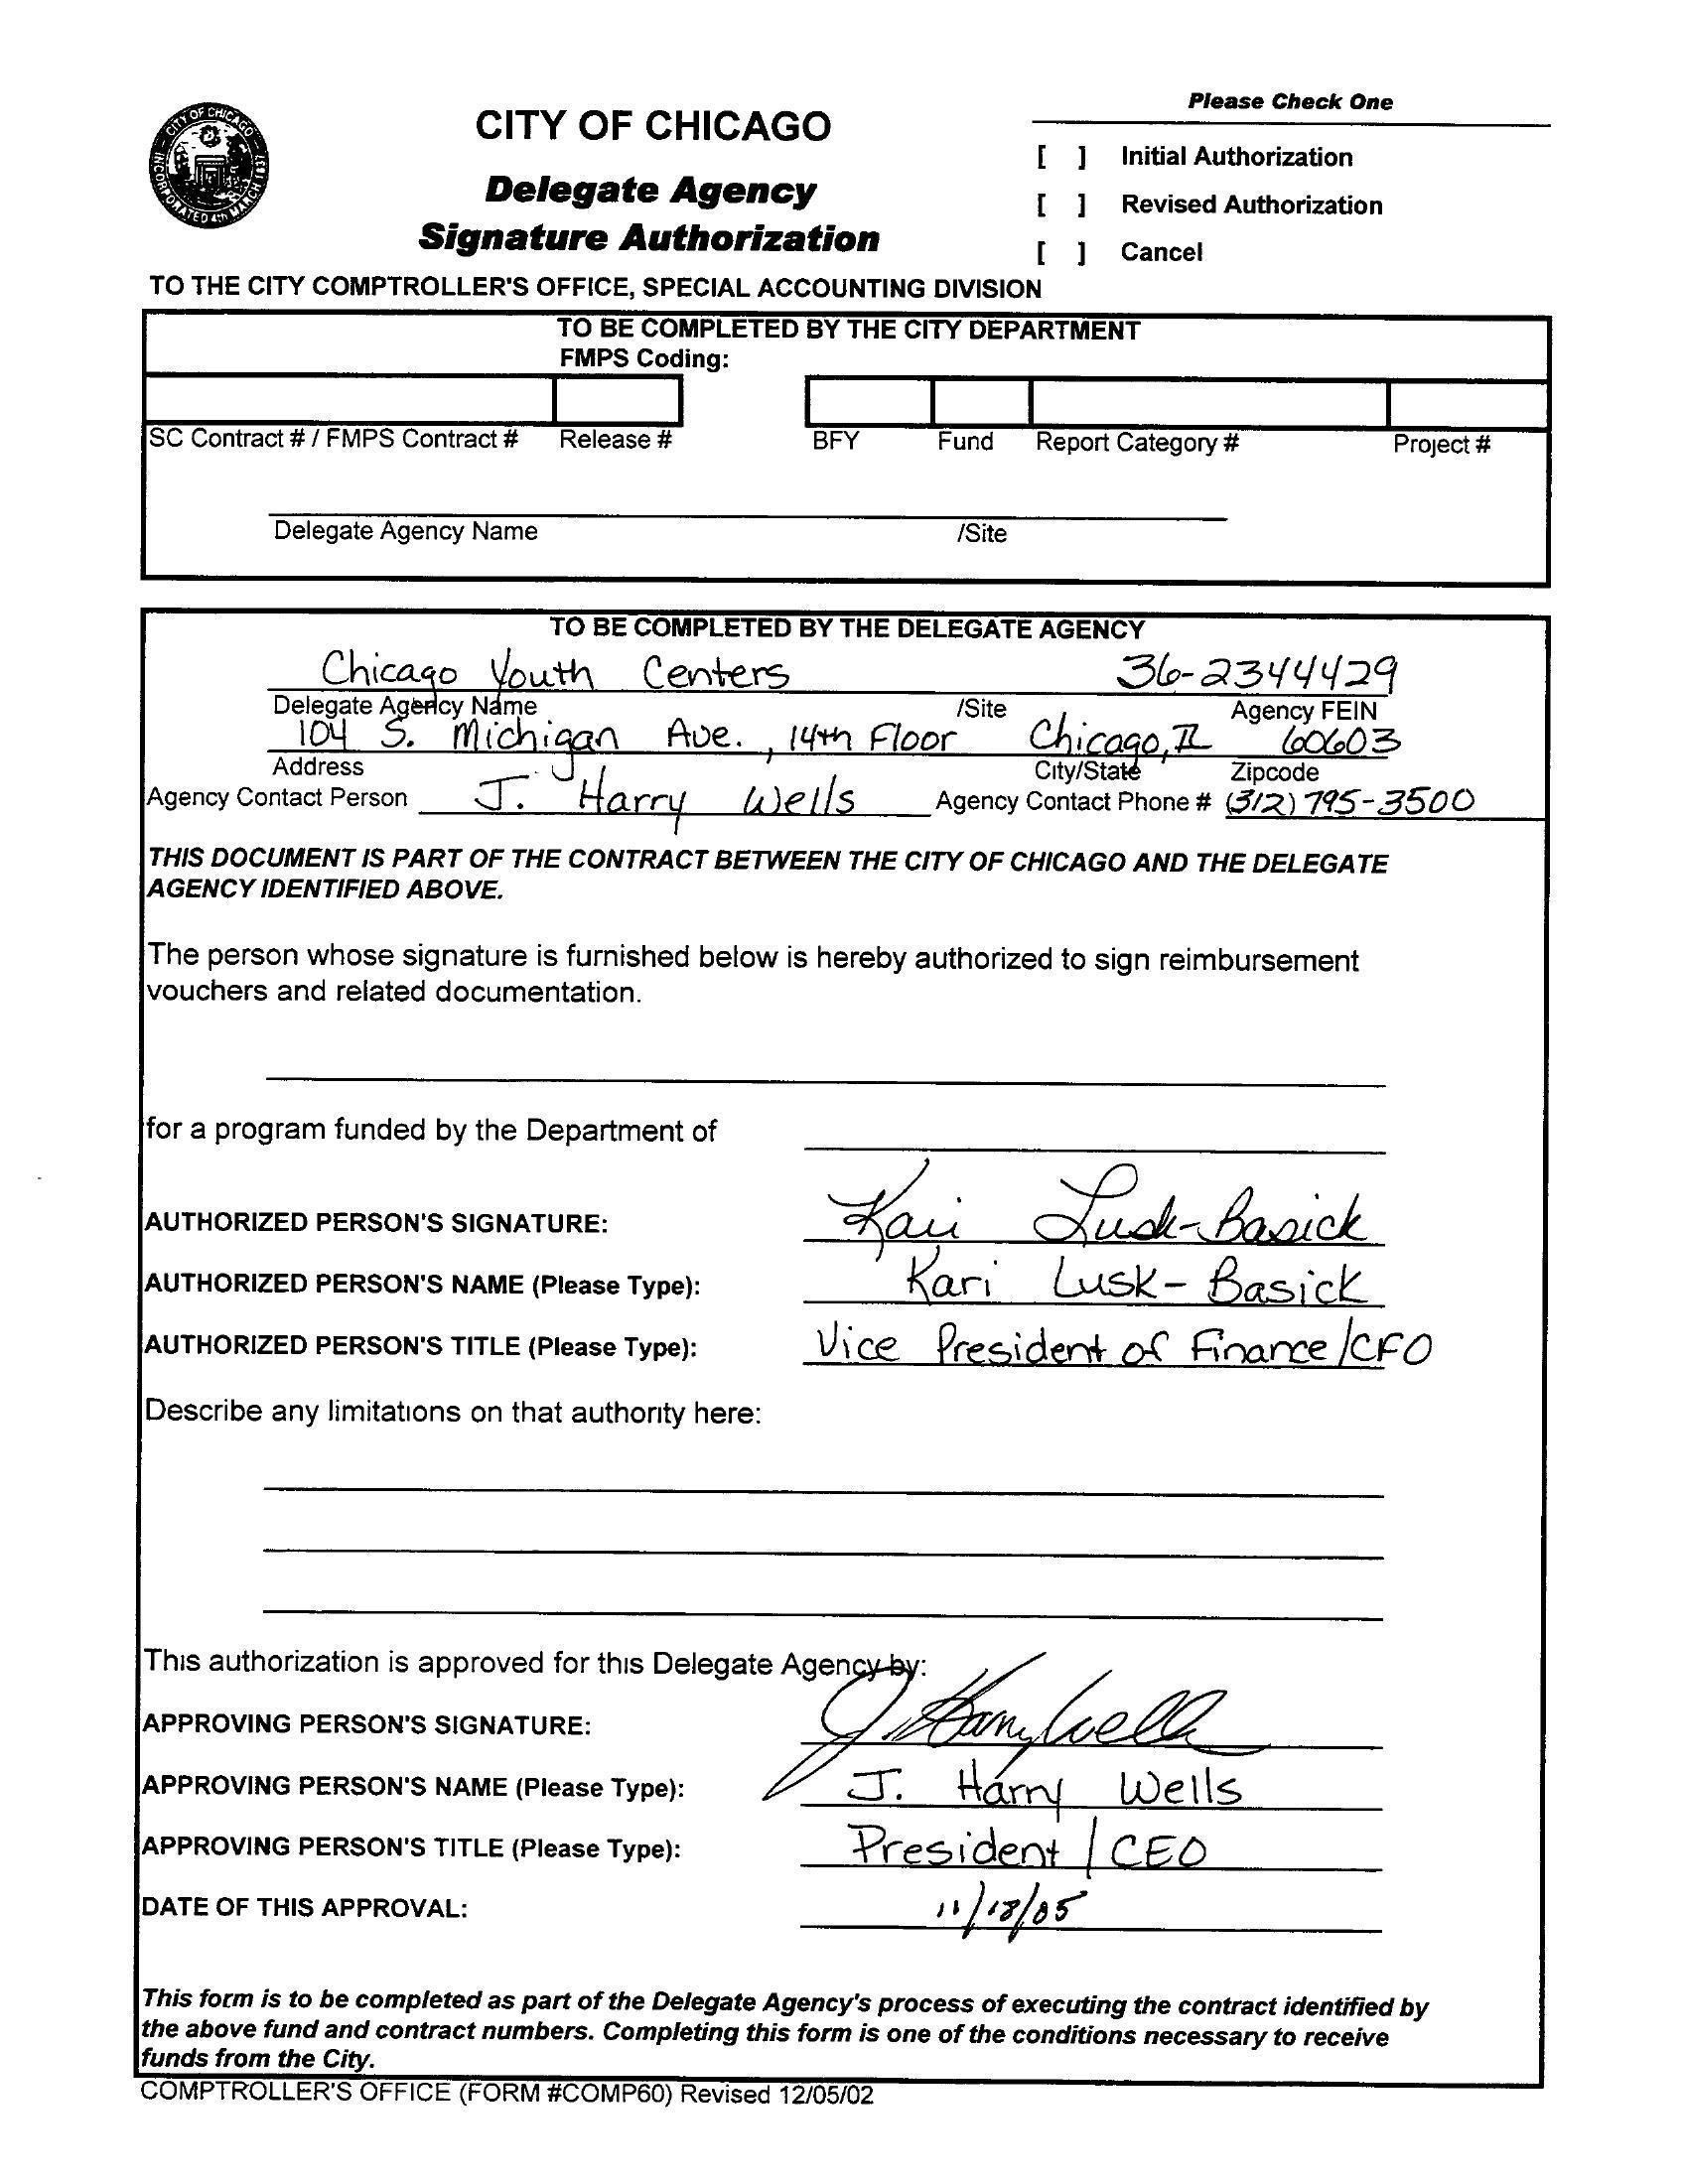 CITY OF CHICAGO
INCORPORATED 4th MARCH 1837
CITY OF CHICAGO
Delegate Agency
Signature Authorization
Please Check One
[ ] Initial Authorization
[ ] Revised Authorization
[ ] Cancel
TO THE CITY COMPTROLLER'S OFFICE, SPECIAL ACCOUNTING DIVISION
TO BE COMPLETED BY THE CITY DEPARTMENT
FMPS Coding:
SC Contract # / FMPS Contract # Release # BFY Fund Report Category # Project #
Delegate Agency Name /Site
TO BE COMPLETED BY THE DELEGATE AGENCY
Chicago Youth Centers 36-2344429
Delegate Agency Name /Site Agency FEIN
104 S. Michigan Ave., 14th Floor Chicago, IL 60603
Address City/State Zipcode
Agency Contact Person J. Harry Wells Agency Contact Phone # (312) 795-3500
THIS DOCUMENT IS PART OF THE CONTRACT BETWEEN THE CITY OF CHICAGO AND THE DELEGATE
AGENCY IDENTIFIED ABOVE.
The person whose signature is furnished below is hereby authorized to sign reimbursement
vouchers and related documentation.
for a program funded by the Department of
AUTHORIZED PERSON'S SIGNATURE: Kari Lusk-Basick
AUTHORIZED PERSON'S NAME (Please Type): Kari Lusk-Basick
AUTHORIZED PERSON'S TITLE (Please Type): Vice President of Finance/CFO
Describe any limitations on that authority here:
This authorization is approved for this Delegate Agency by:
APPROVING PERSON'S SIGNATURE: J. Harry Wells
APPROVING PERSON'S NAME (Please Type): J. Harry Wells
APPROVING PERSON'S TITLE (Please Type): President / CEO
DATE OF THIS APPROVAL: 11/18/05
This form is to be completed as part of the Delegate Agency's process of executing the contract identified by
the above fund and contract numbers. Completing this form is one of the conditions necessary to receive
funds from the City.
COMPTROLLER'S OFFICE (FORM #COMP60) Revised 12/05/02